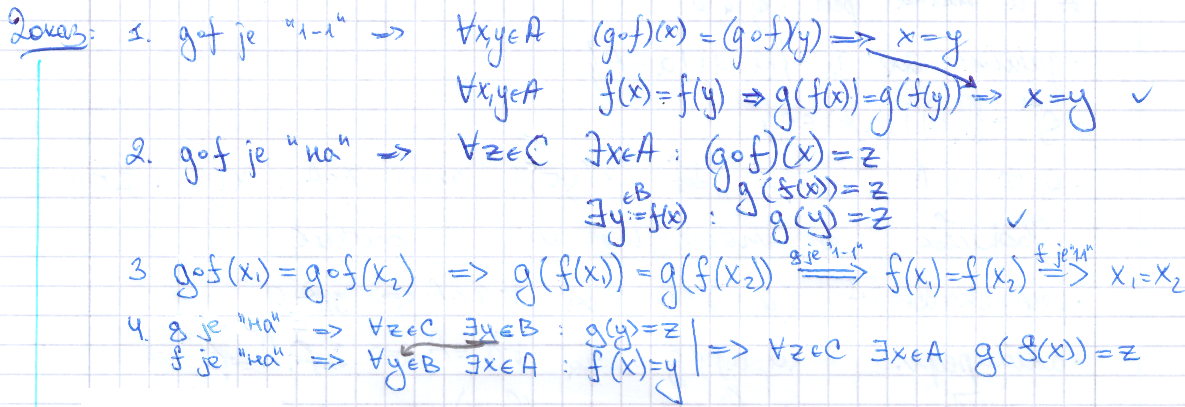 Доказ: 1. g∘f је "1-1" => ∀x,y∈A (g∘f)(x) = (g∘f)(y) => x=y
∀x,y∈A f(x)=f(y) => g(f(x))=g(f(y)) => x=y ✓
2. g∘f је "на" => ∀z∈C ∃x∈A : (g∘f)(x)=z
g(f(x))=z
∃y:=f(x) ∈B : g(y)=z ✓
3 g∘f(x₁)=g∘f(x₂) => g(f(x₁))=g(f(x₂)) g је "1-1" => f(x₁)=f(x₂) f је "11" => x₁=x₂
4. g је "на" => ∀z∈C ∃y∈B : g(y)=z
f је "на" => ∀y∈B ∃x∈A : f(x)=y | => ∀z∈C ∃x∈A g(f(x))=z